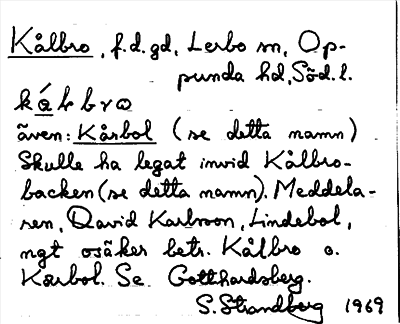 Kålbro, f.d.gd, Lerbo sn, Op-
punda hd, Söd. l.
kålbro
även: Kårbol (se detta namn)
Skulle ha legat invid Kålbro-
backen (se detta namn). Meddela-
ren, David Karlsson, Lindebol,
ngt osäker betr. Kålbro o.
Kårbol. Se Gotthardsberg.
S. Strandberg 1969